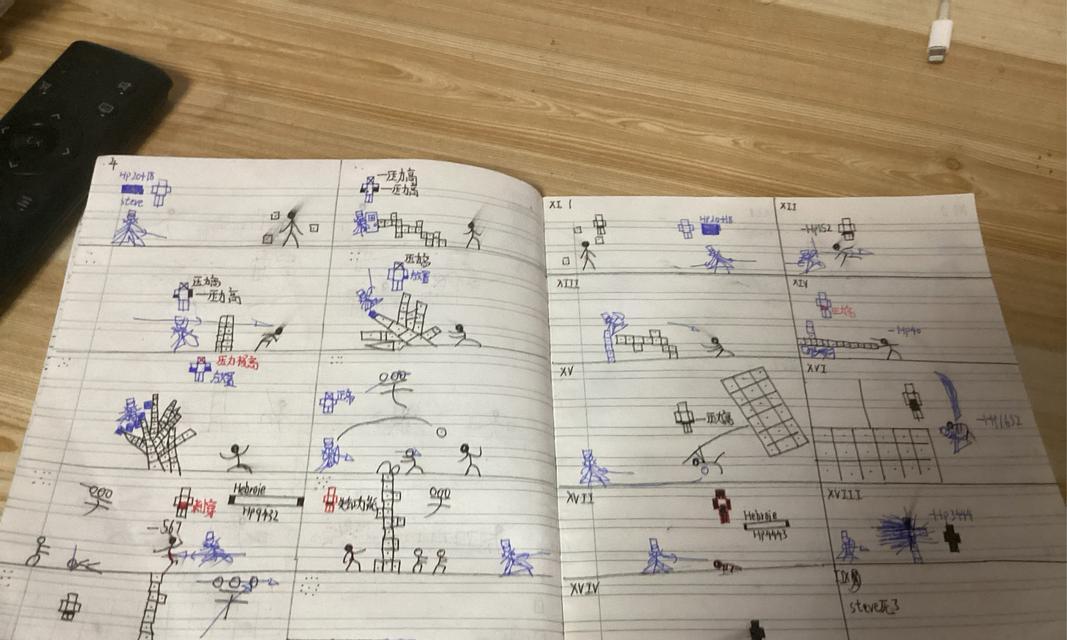 4
HP20418
steve
一压力高
一压力高
压力高
一压力高
压力高
放置
压力极高
放置
正常
刺穿
Hebroie
HP9432
-567
XI
HP20418
XII
-HP152
XIII
XIV
压力高
-HP40
XV
一压力高
XVI
-HP1652
XVII
Hebroie
HP4443
XVIII
-HP3444
XVIV
steve死了